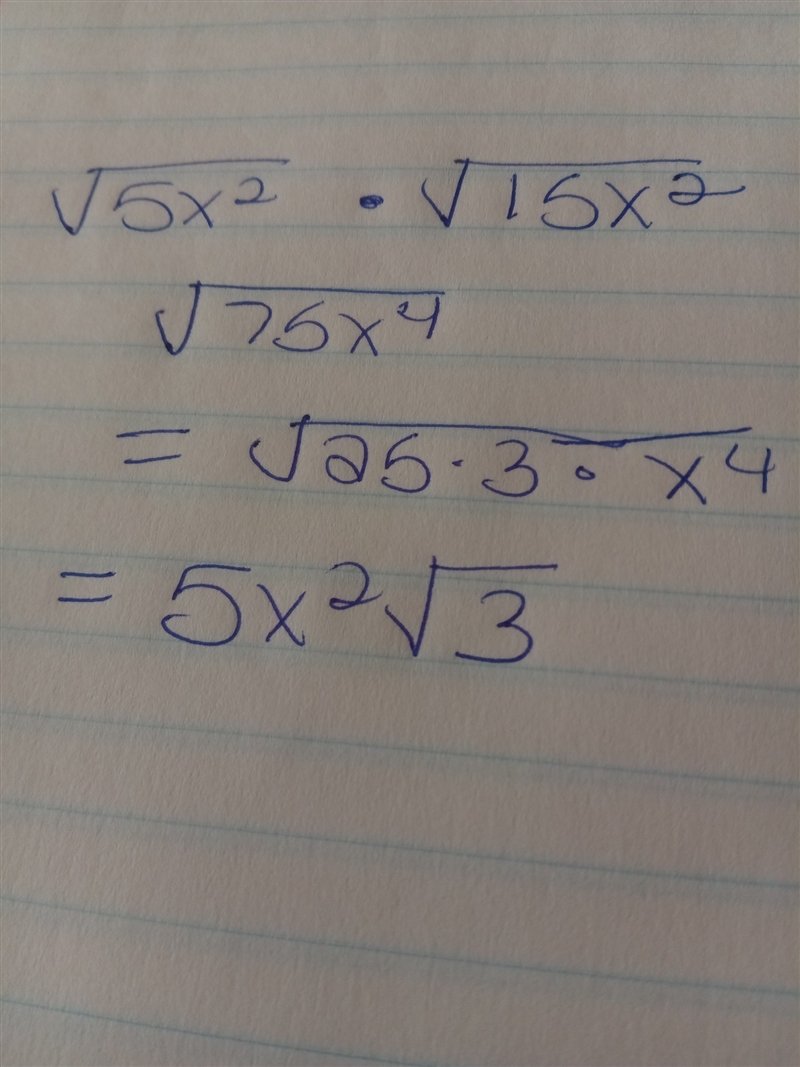 √5x² • √15x²
√75x⁴
= √25·3·x⁴
= 5x²√3